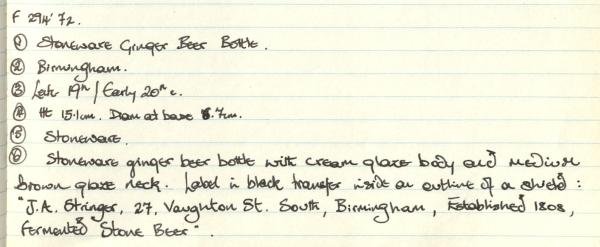 F 294'72.
① Stoneware Ginger Beer Bottle.
② Birmingham.
③ Late 19th / Early 20th c.
④ Ht 15.1cm. Diam at base 6.7cm.
⑤ Stoneware.
⑥ Stoneware ginger beer bottle with cream glaze body and medium
brown glaze neck. Label in black transfer inside an outline of a shield :
"J.A. Stringer, 27, Vaughton St. South, Birmingham, Established 1808,
Fermented Stone Beer".